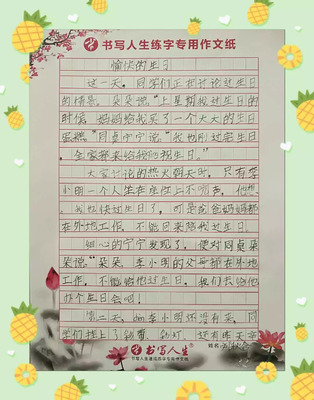 书写人生练字专用作文纸
愉快的生日
这一天，同学们正在讨论过生日
的情景。朵朵说："上星期我过生日的
时候，妈妈给我买了一个大大的生日
蛋糕。"同桌宁宁说："我也刚过完生日，
全家都来给我们祝生日。"
大家讨论的热火朝天时，只有李
小明一个人坐在座位上不吭声，他想：
我也快过生日了，可是爸爸妈妈都
在外地工作，不能回来陪我过生日。
细心的宁宁发现了，便对同桌朵
朵说："朵朵，李小明的父母都在外地
工作，不能给他过生日，我们去给他
办个生日会吧！
第二天，李小明还没有来，同
学们挂上了彩带、彩灯，还有
书写人生
书写人生速成练字专用作文纸
姓名